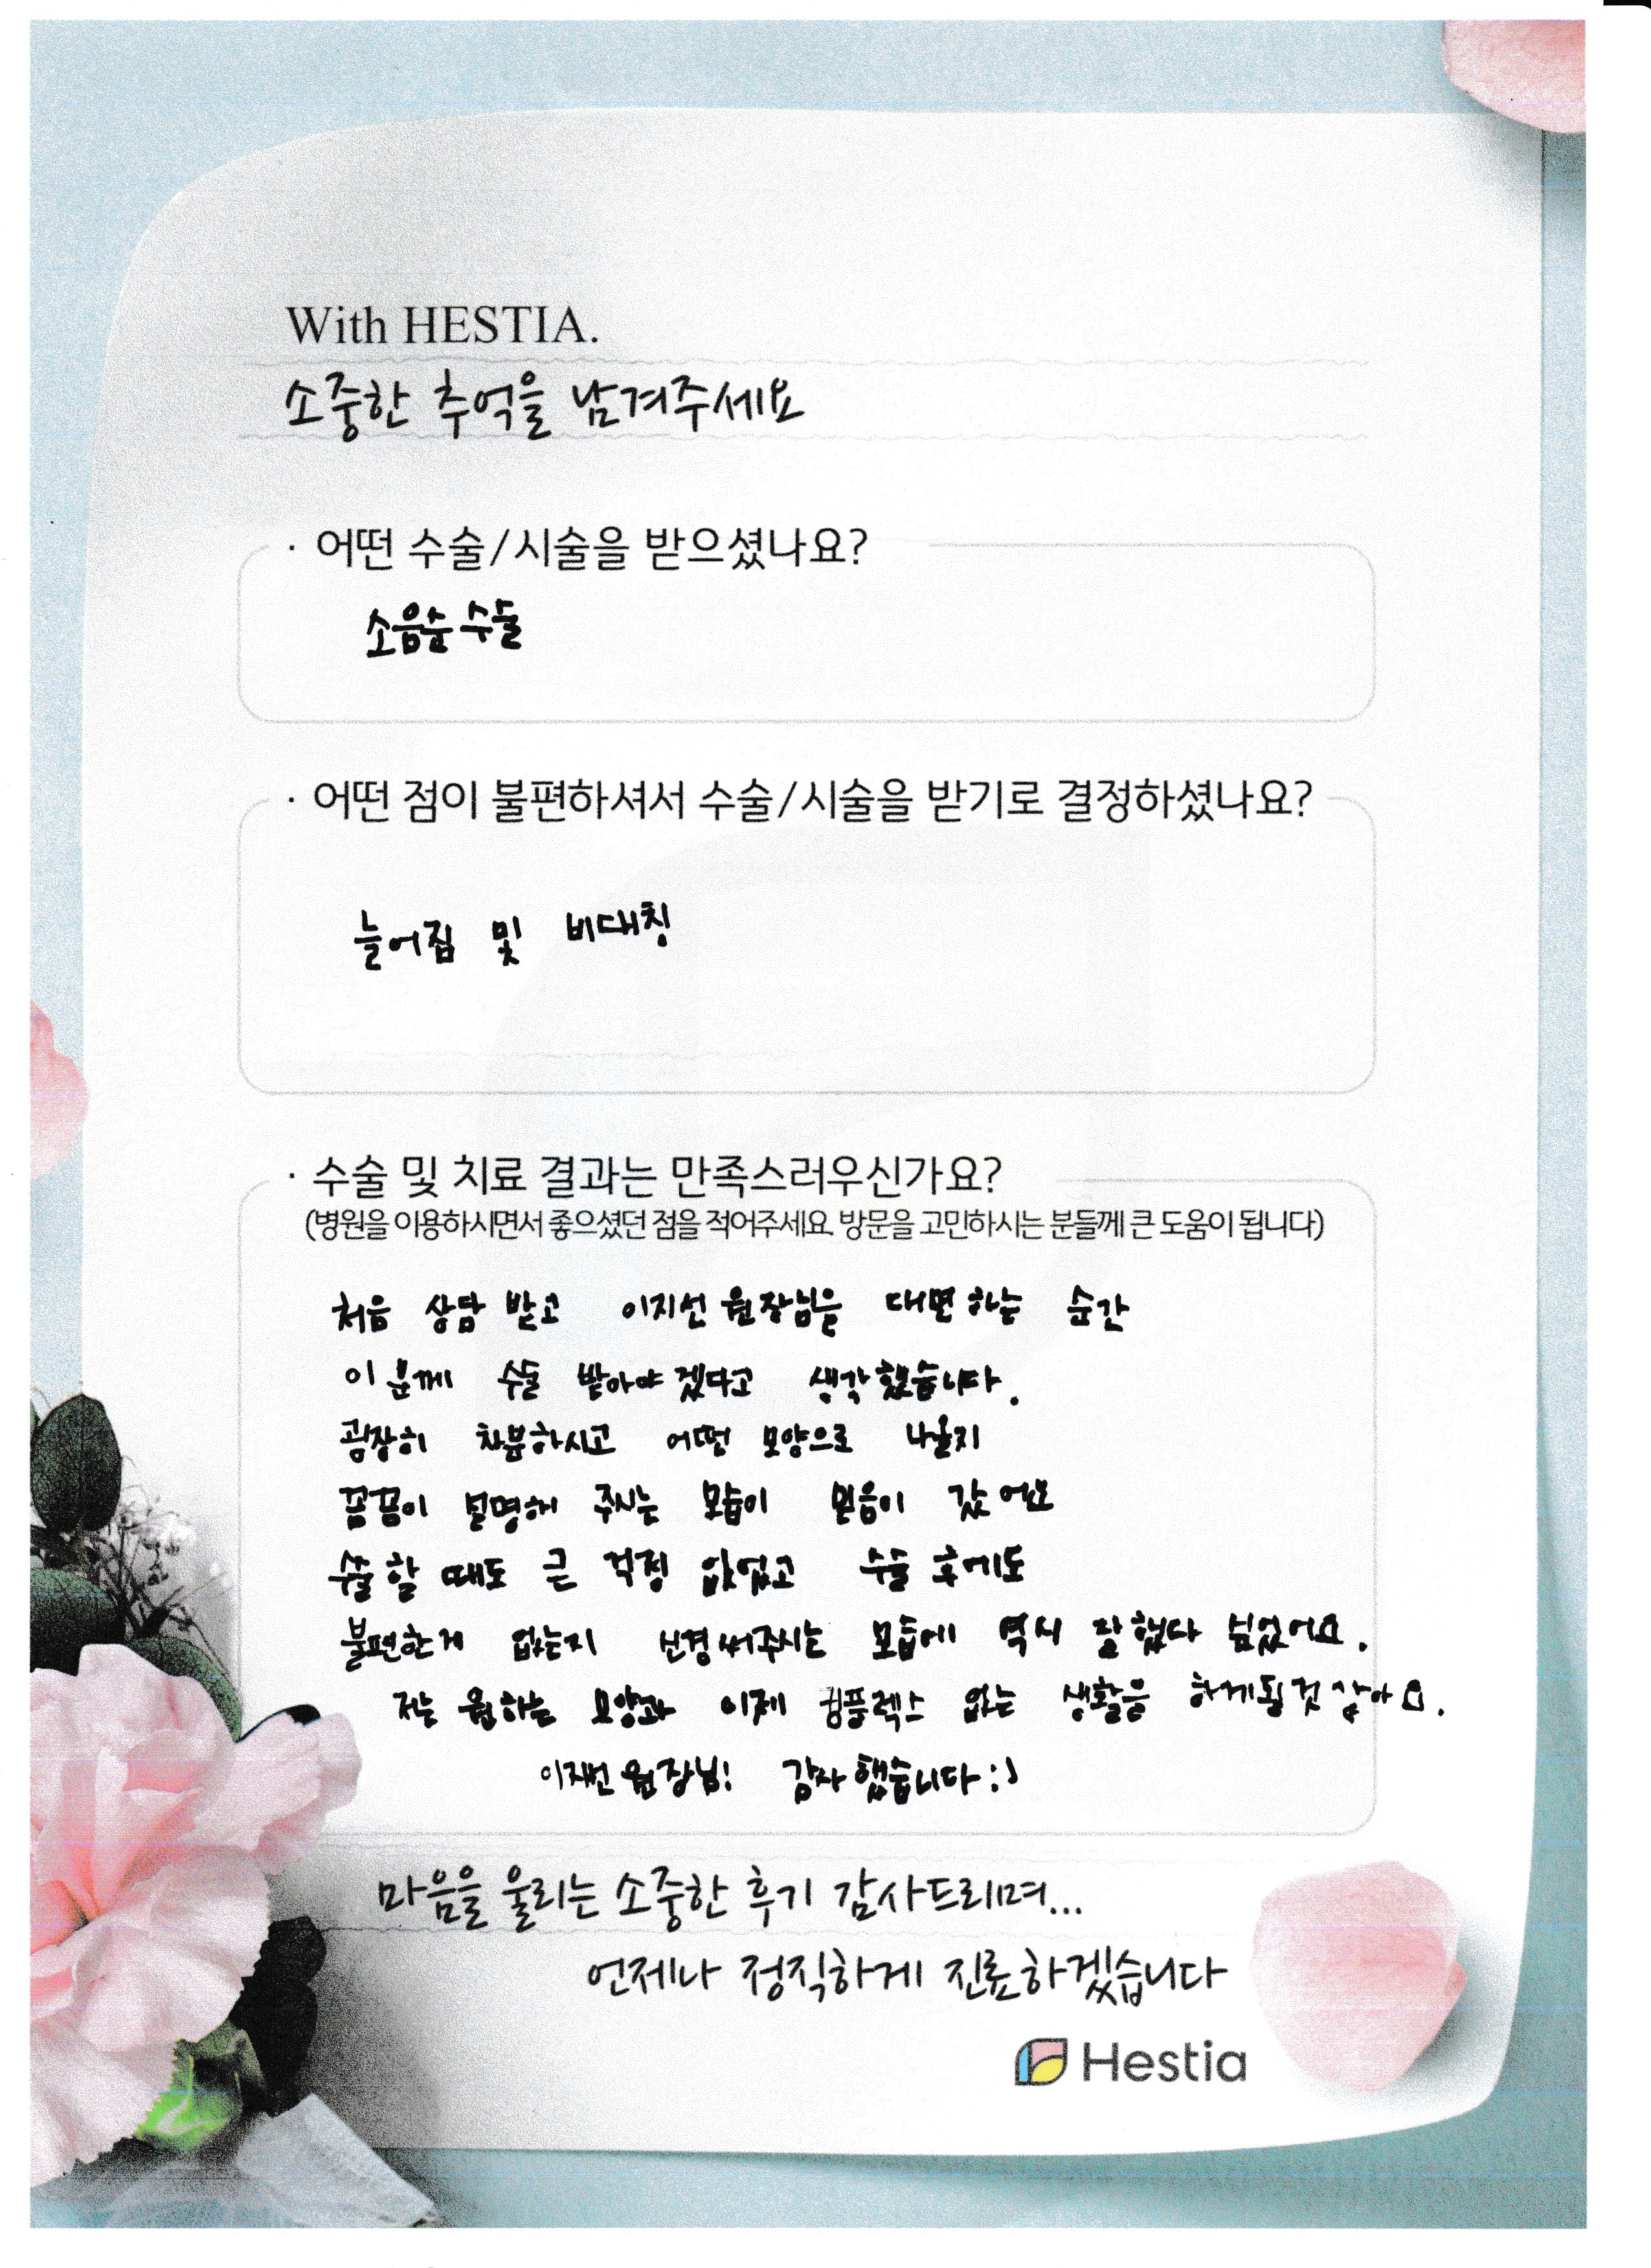 With HESTIA.
소중한 추억을 남겨주세요
· 어떤 수술/시술을 받으셨나요?
소음순 수술
· 어떤 점이 불편하셔서 수술/시술을 받기로 결정하셨나요?
늘어짐 및 비대칭
· 수술 및 치료 결과는 만족스러우신가요?
(병원을 이용하시면서 좋으셨던 점을 적어주세요. 방문을 고민하시는 분들께 큰 도움이 됩니다)
처음 상담 받고 이지선 원장님을 대면 하는 순간
이 분께 수술 받아야 겠다고 생각 했습니다.
굉장히 차분하시고 어떤 모양으로 나올지
꼼꼼이 설명해 주시는 모습이 믿음이 갔어요
수술 할 때도 큰 걱정 없었고 수술 후에도
불편한게 없는지 신경써주시는 모습에 역시 잘 했다 싶었어요.
저는 원하는 모양과 이제 컴플렉스 없는 생활을 하게될 것 같아요.
이지선 원장님! 감사했습니다 :)
마음을 울리는 소중한 후기 감사드리며...
언제나 정직하게 진료하겠습니다
Hestia